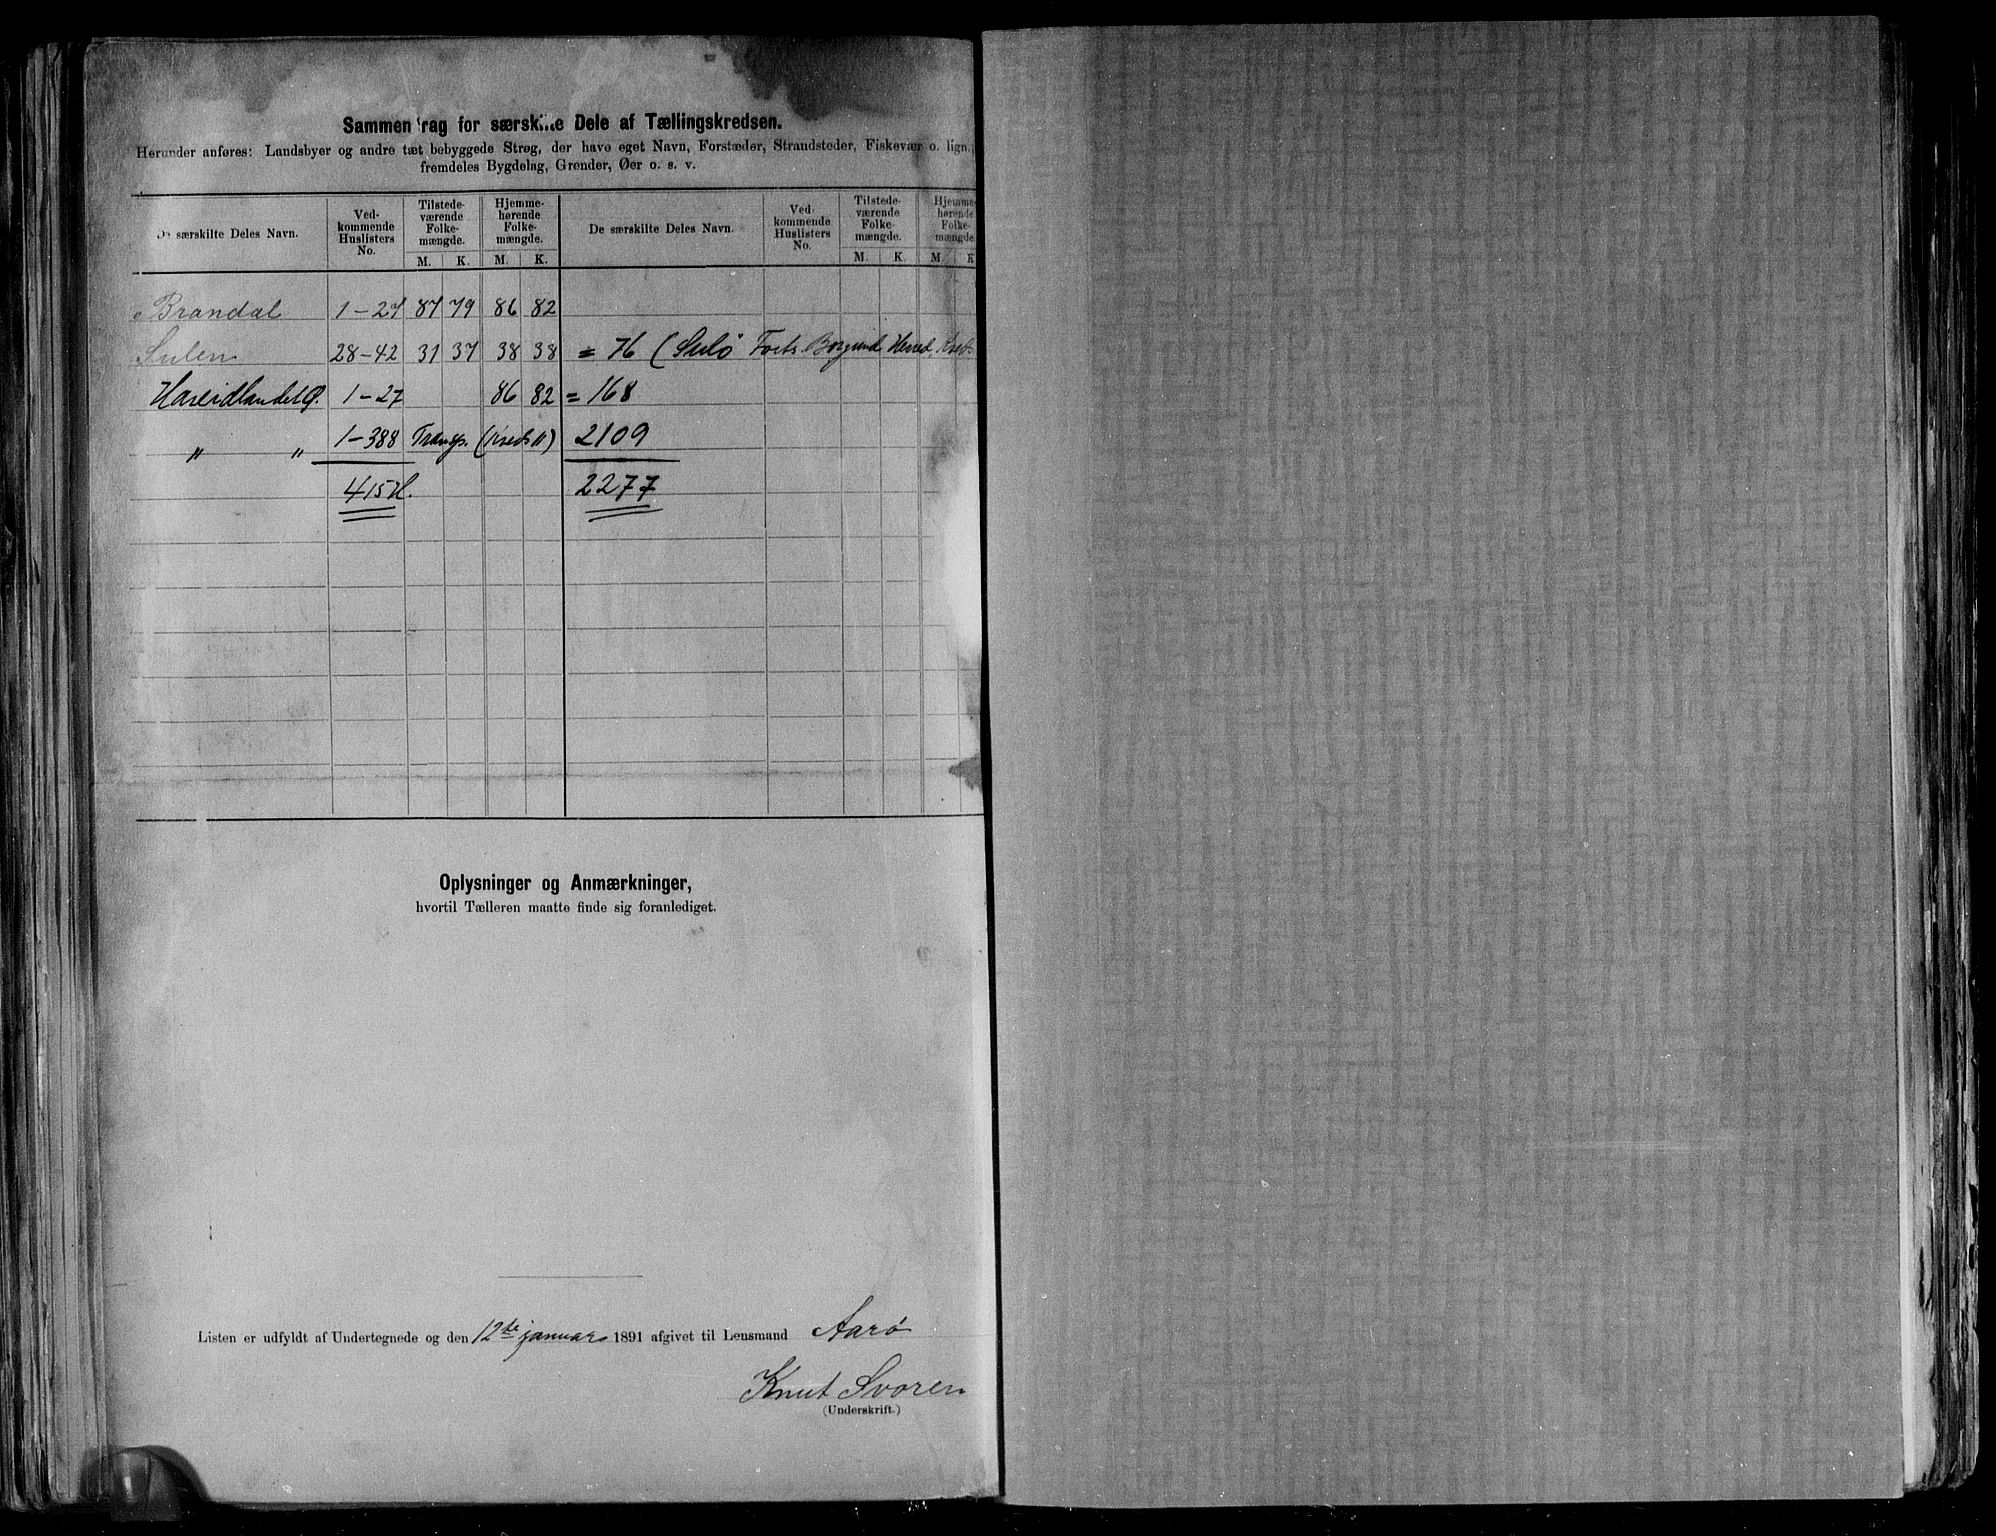 Sammen rag for særsk...e Dele af Tællingskredsen.
Herunder anføres: Landsbyer og andre tæt bebyggede Strøg, der have eget Navn, Forstæder, Strandsteder, Fiskevær o. lign.,
fremdeles Bygdelag, Grender, Øer o. s. v.
De særskilte Deles Navn. Ved-kommende Huslisters No. Tilstede-værende Folke-mængde. Hjemme-hørende Folke-mængde. De særskilte Deles Navn. Ved-kommende Huslisters No. Tilstede-værende Folke-mængde. Hjemme-hørende Folke-mængde.
M. K. M. K. M. K. M. K
Brandal 1-27 87 79 86 82
Sulen 28-42 31 37 38 38 = 76 (Sulö Forts. Borgund Herred, Kreds
Hareidlandet 1-27 86 82 = 168
" " 1-388 Transp. (Kreds 11) 2109
415 H. 2277
Oplysninger og Anmærkninger,
hvortil Tælleren maatte finde sig foranlediget.
Listen er udfyldt af Undertegnede og den 12te januar 1891 afgivet til Lensmand Aarö
Knut Svoren
(Underskrift.)